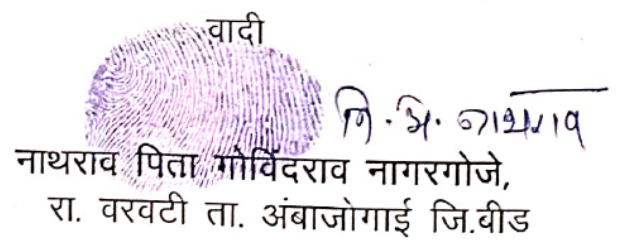 वादी
नि. अं. नाथराव
नाथराव पिता गोविंदराव नागरगोजे,
रा. वरवटी ता. अंबाजोगाई जि.बीड